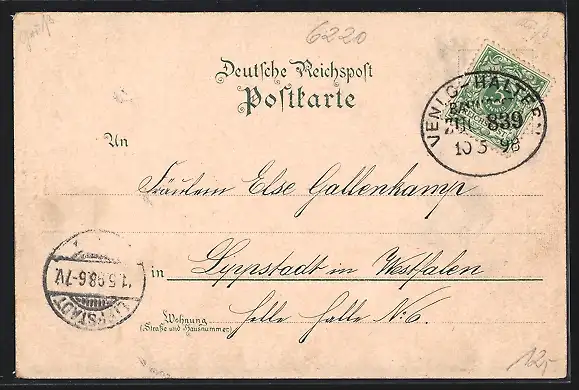 6220
Deutsche Reichspost
Postkarte
VENLO-HALTERN
BAHNPOST
ZUG 839
10 5 98
An
Fräulein Else Gallenkamp
in Lippstadt in Westfalen
Wohnung
(Straße und Hausnummer)
Helle Halle No: 6.
LIPPSTADT
1.5.98.6-7V.
12,-